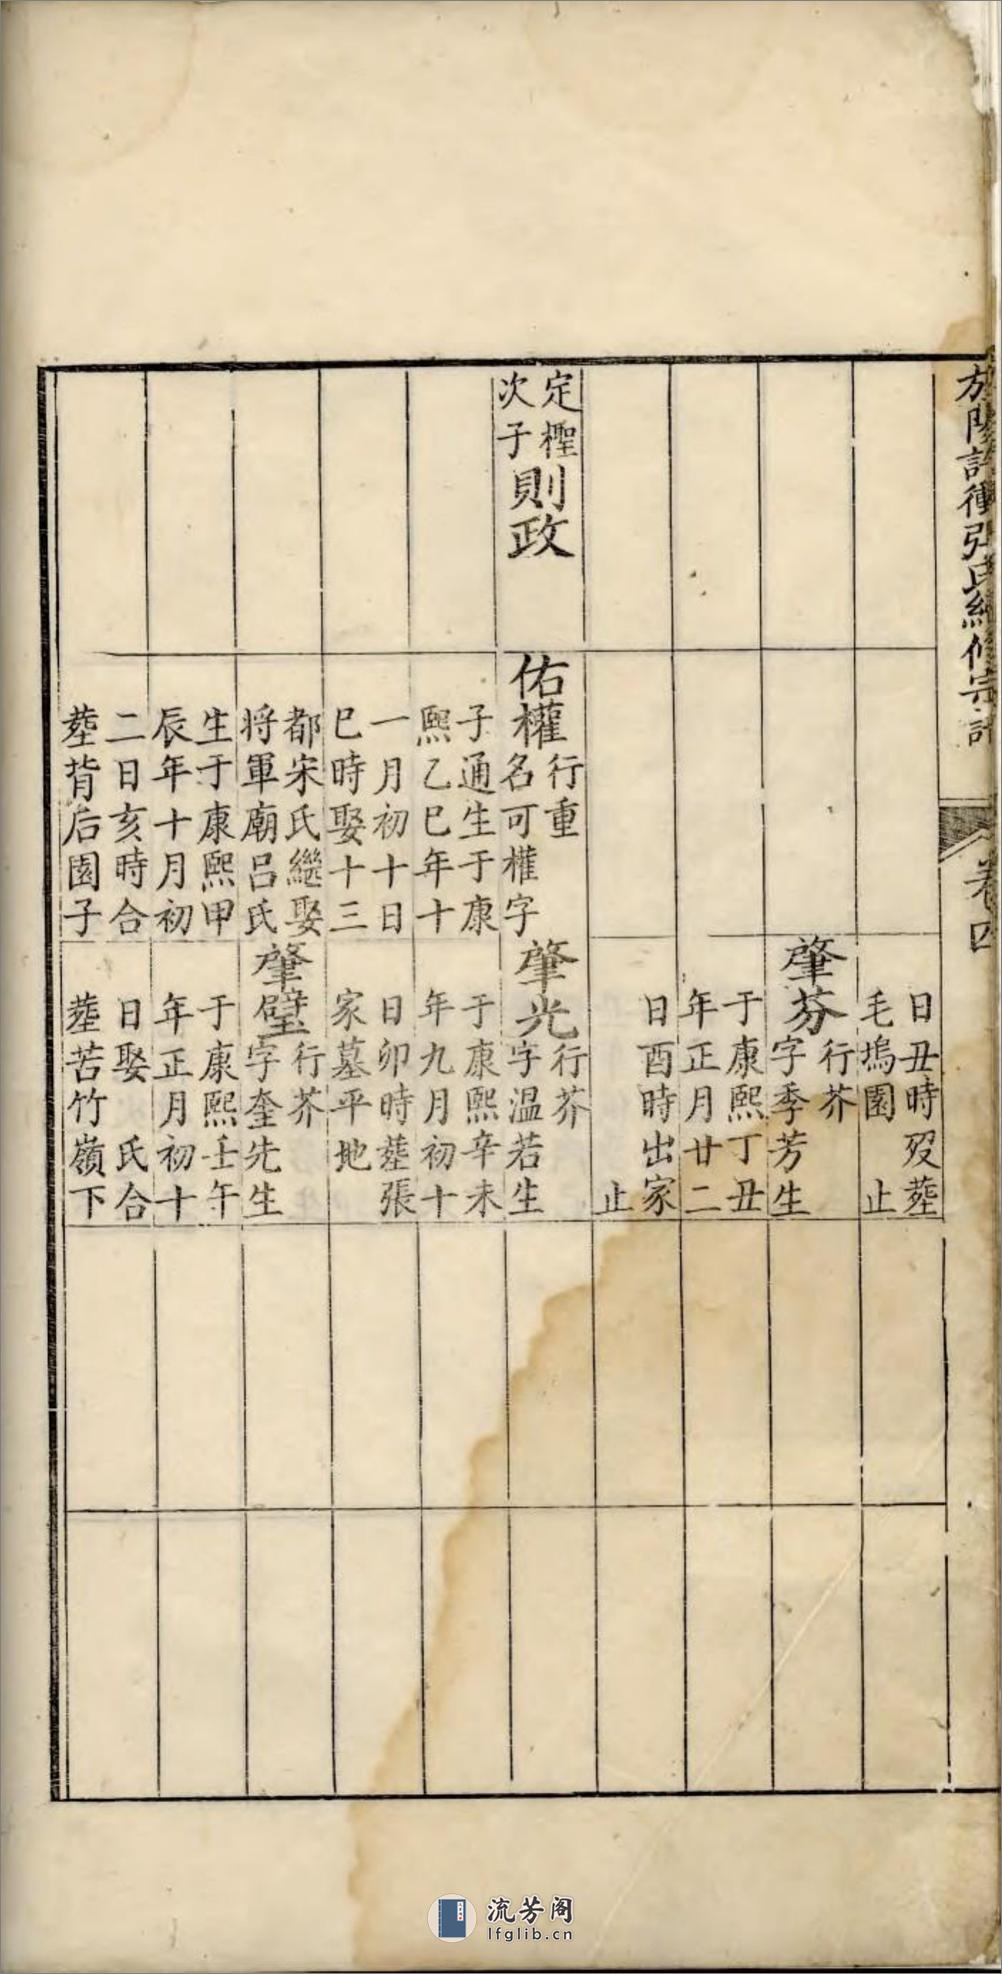 陽
張氏
修宗
卷四
定檉
次子
則政
佑權
行重
名可權字
子通生于康
熙乙巳年十
一月初十日
巳時娶十三
都宋氏繼娶
将軍廟呂氏
生于康熙甲
辰年十月初
二日亥時合
塟背后園子
日丑時歿塟
毛塢園 止
肇芬
行芥
字季芳生
于康熙丁丑
年正月廿二
日酉時出家
止
肇光
行芥
字温若生
于康熙辛未
年九月初十
日卯時塟張
家墓平地
肇璧
行芥
字奎先生
于康熙壬午
年正月初十
日娶 氏合
塟苦竹嶺下
流芳阁
lfglib.cn